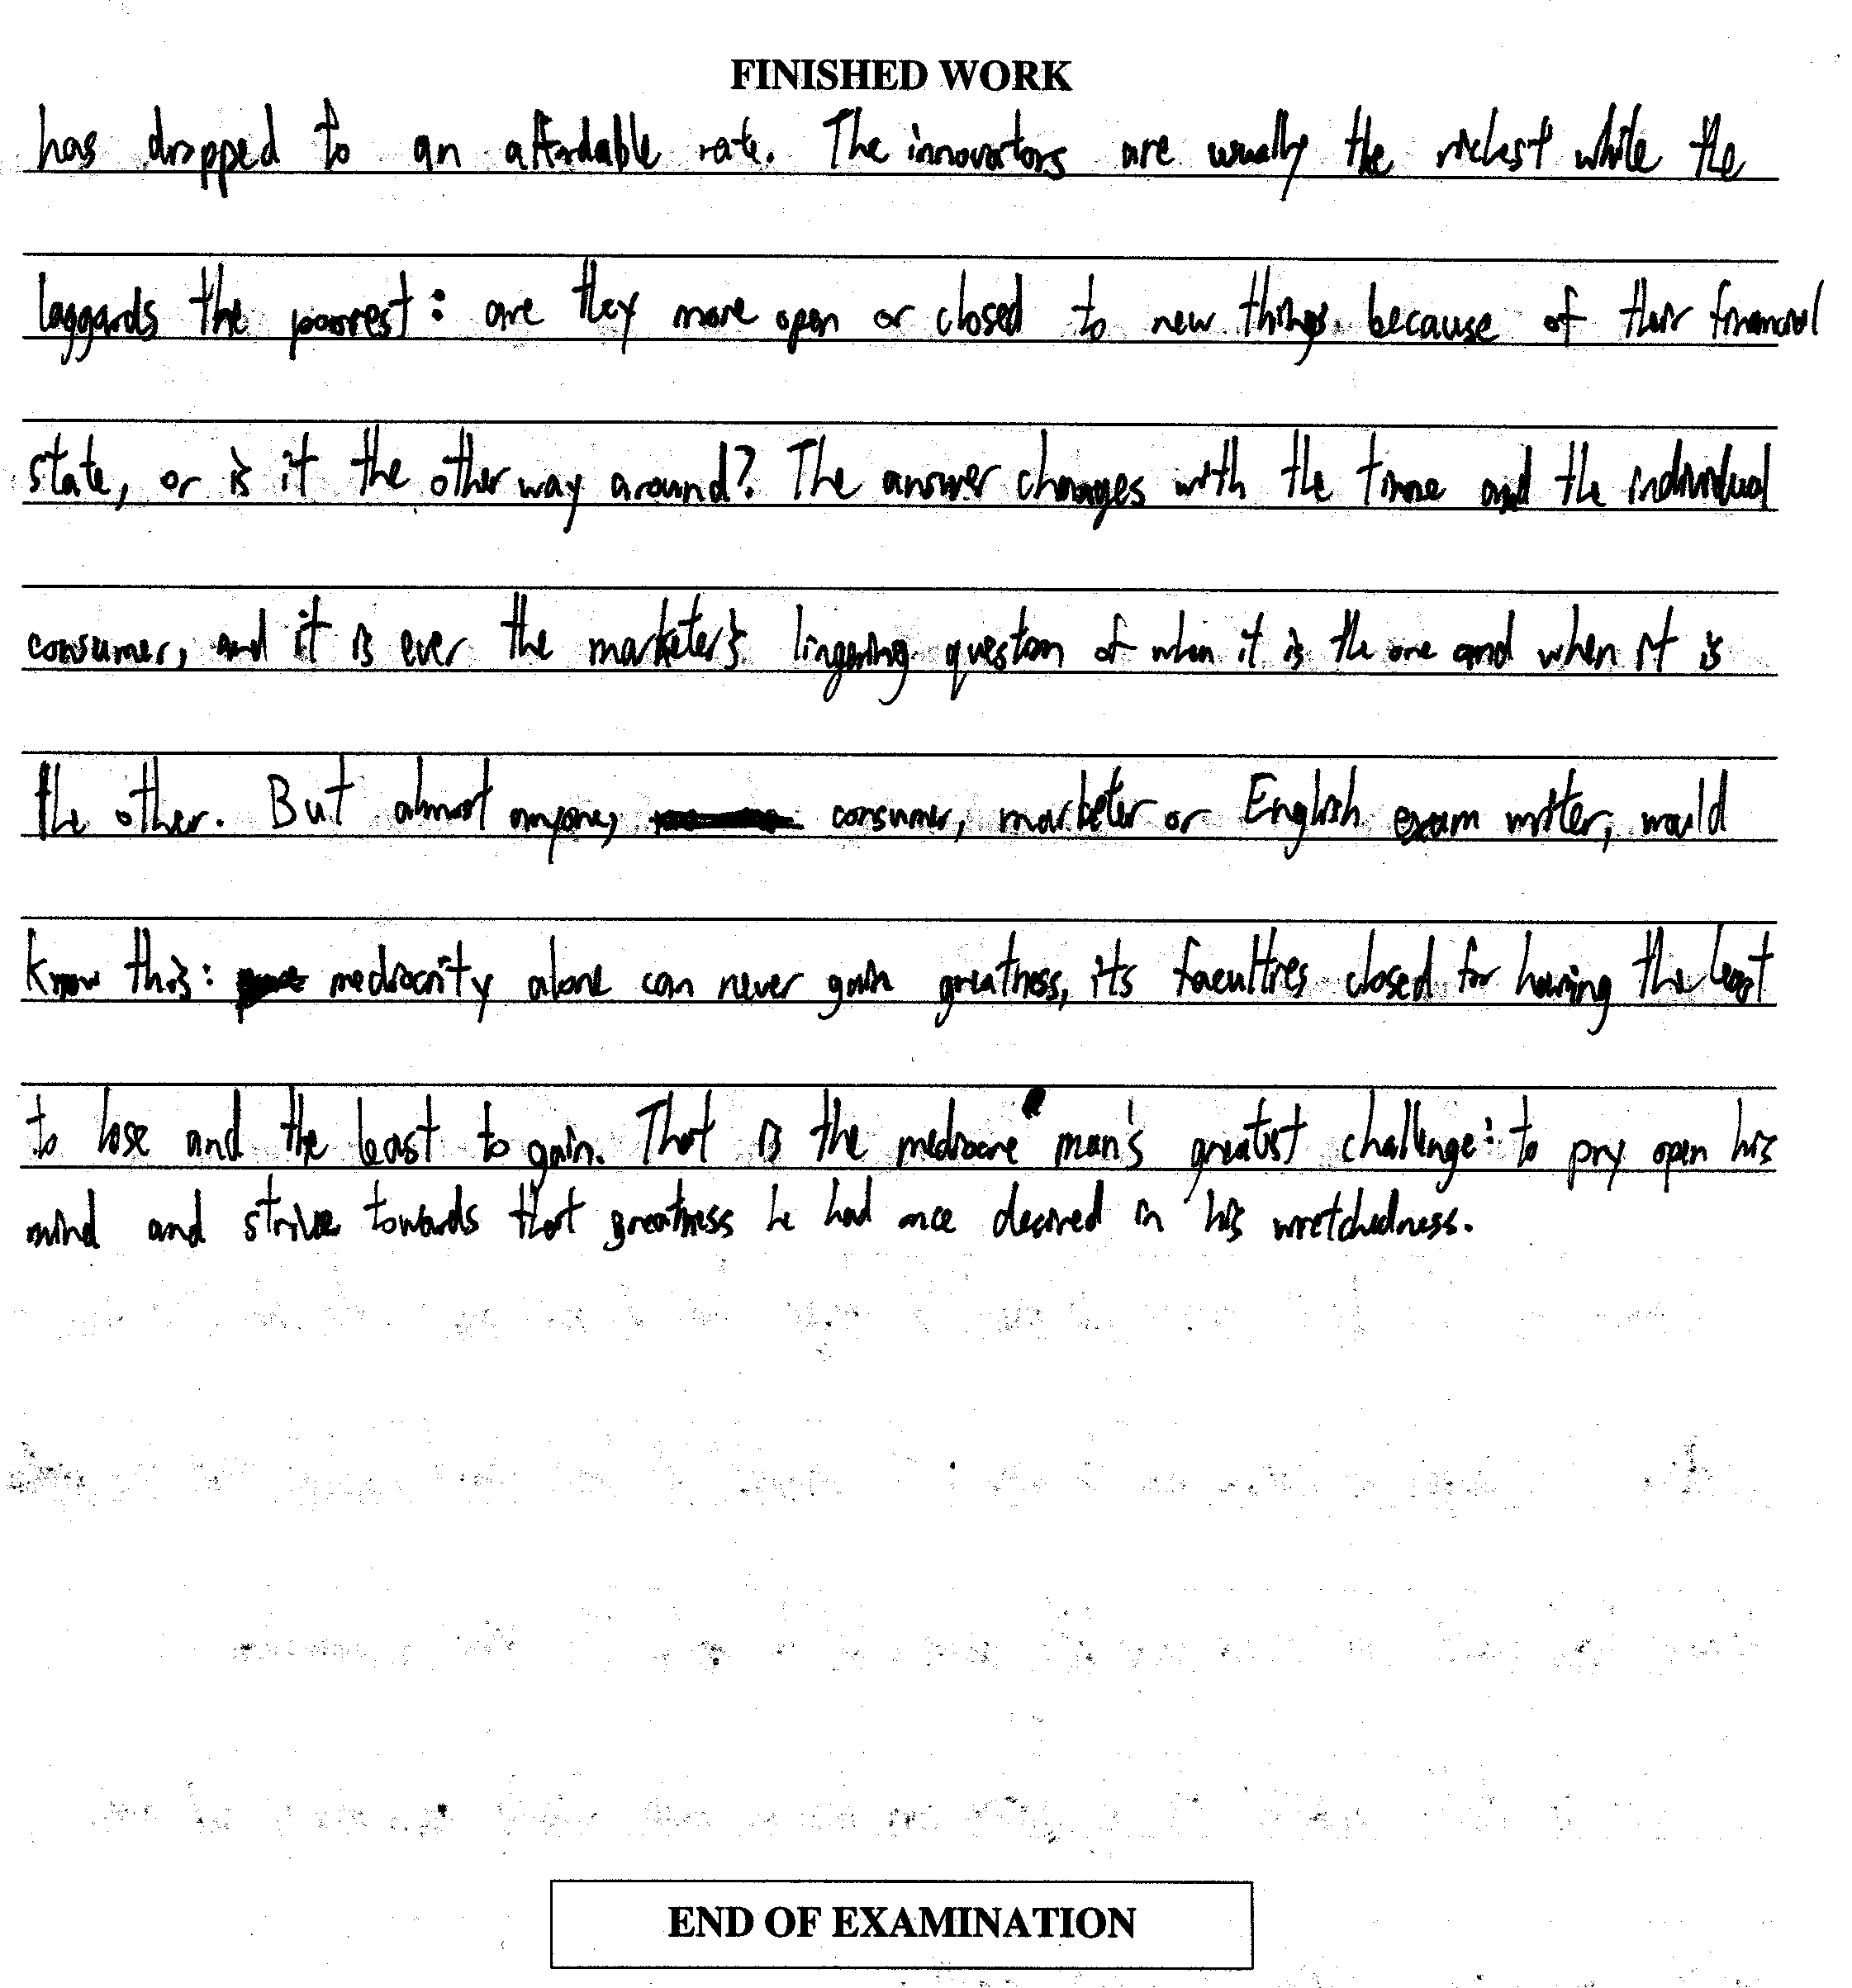 FINISHED WORK
has dropped to an affordable rate. The innovators are usually the richest while the
laggards the poorest: are they more open or closed to new things because of their financial
state, or is it the other way around? The answer changes with the time and the individual
consumer, and it is ever the marketer's lingering question of when it is the one and when it is
the other. But almost anyone, consumer, marketer or English exam writer, would
know this: mediocrity alone can never gain greatness, its faculties closed for having the least
to lose and the least to gain. That is the mediocre man's greatest challenge: to pry open his
mind and strive towards that greatness he had once desired in his wretchedness.
END OF EXAMINATION